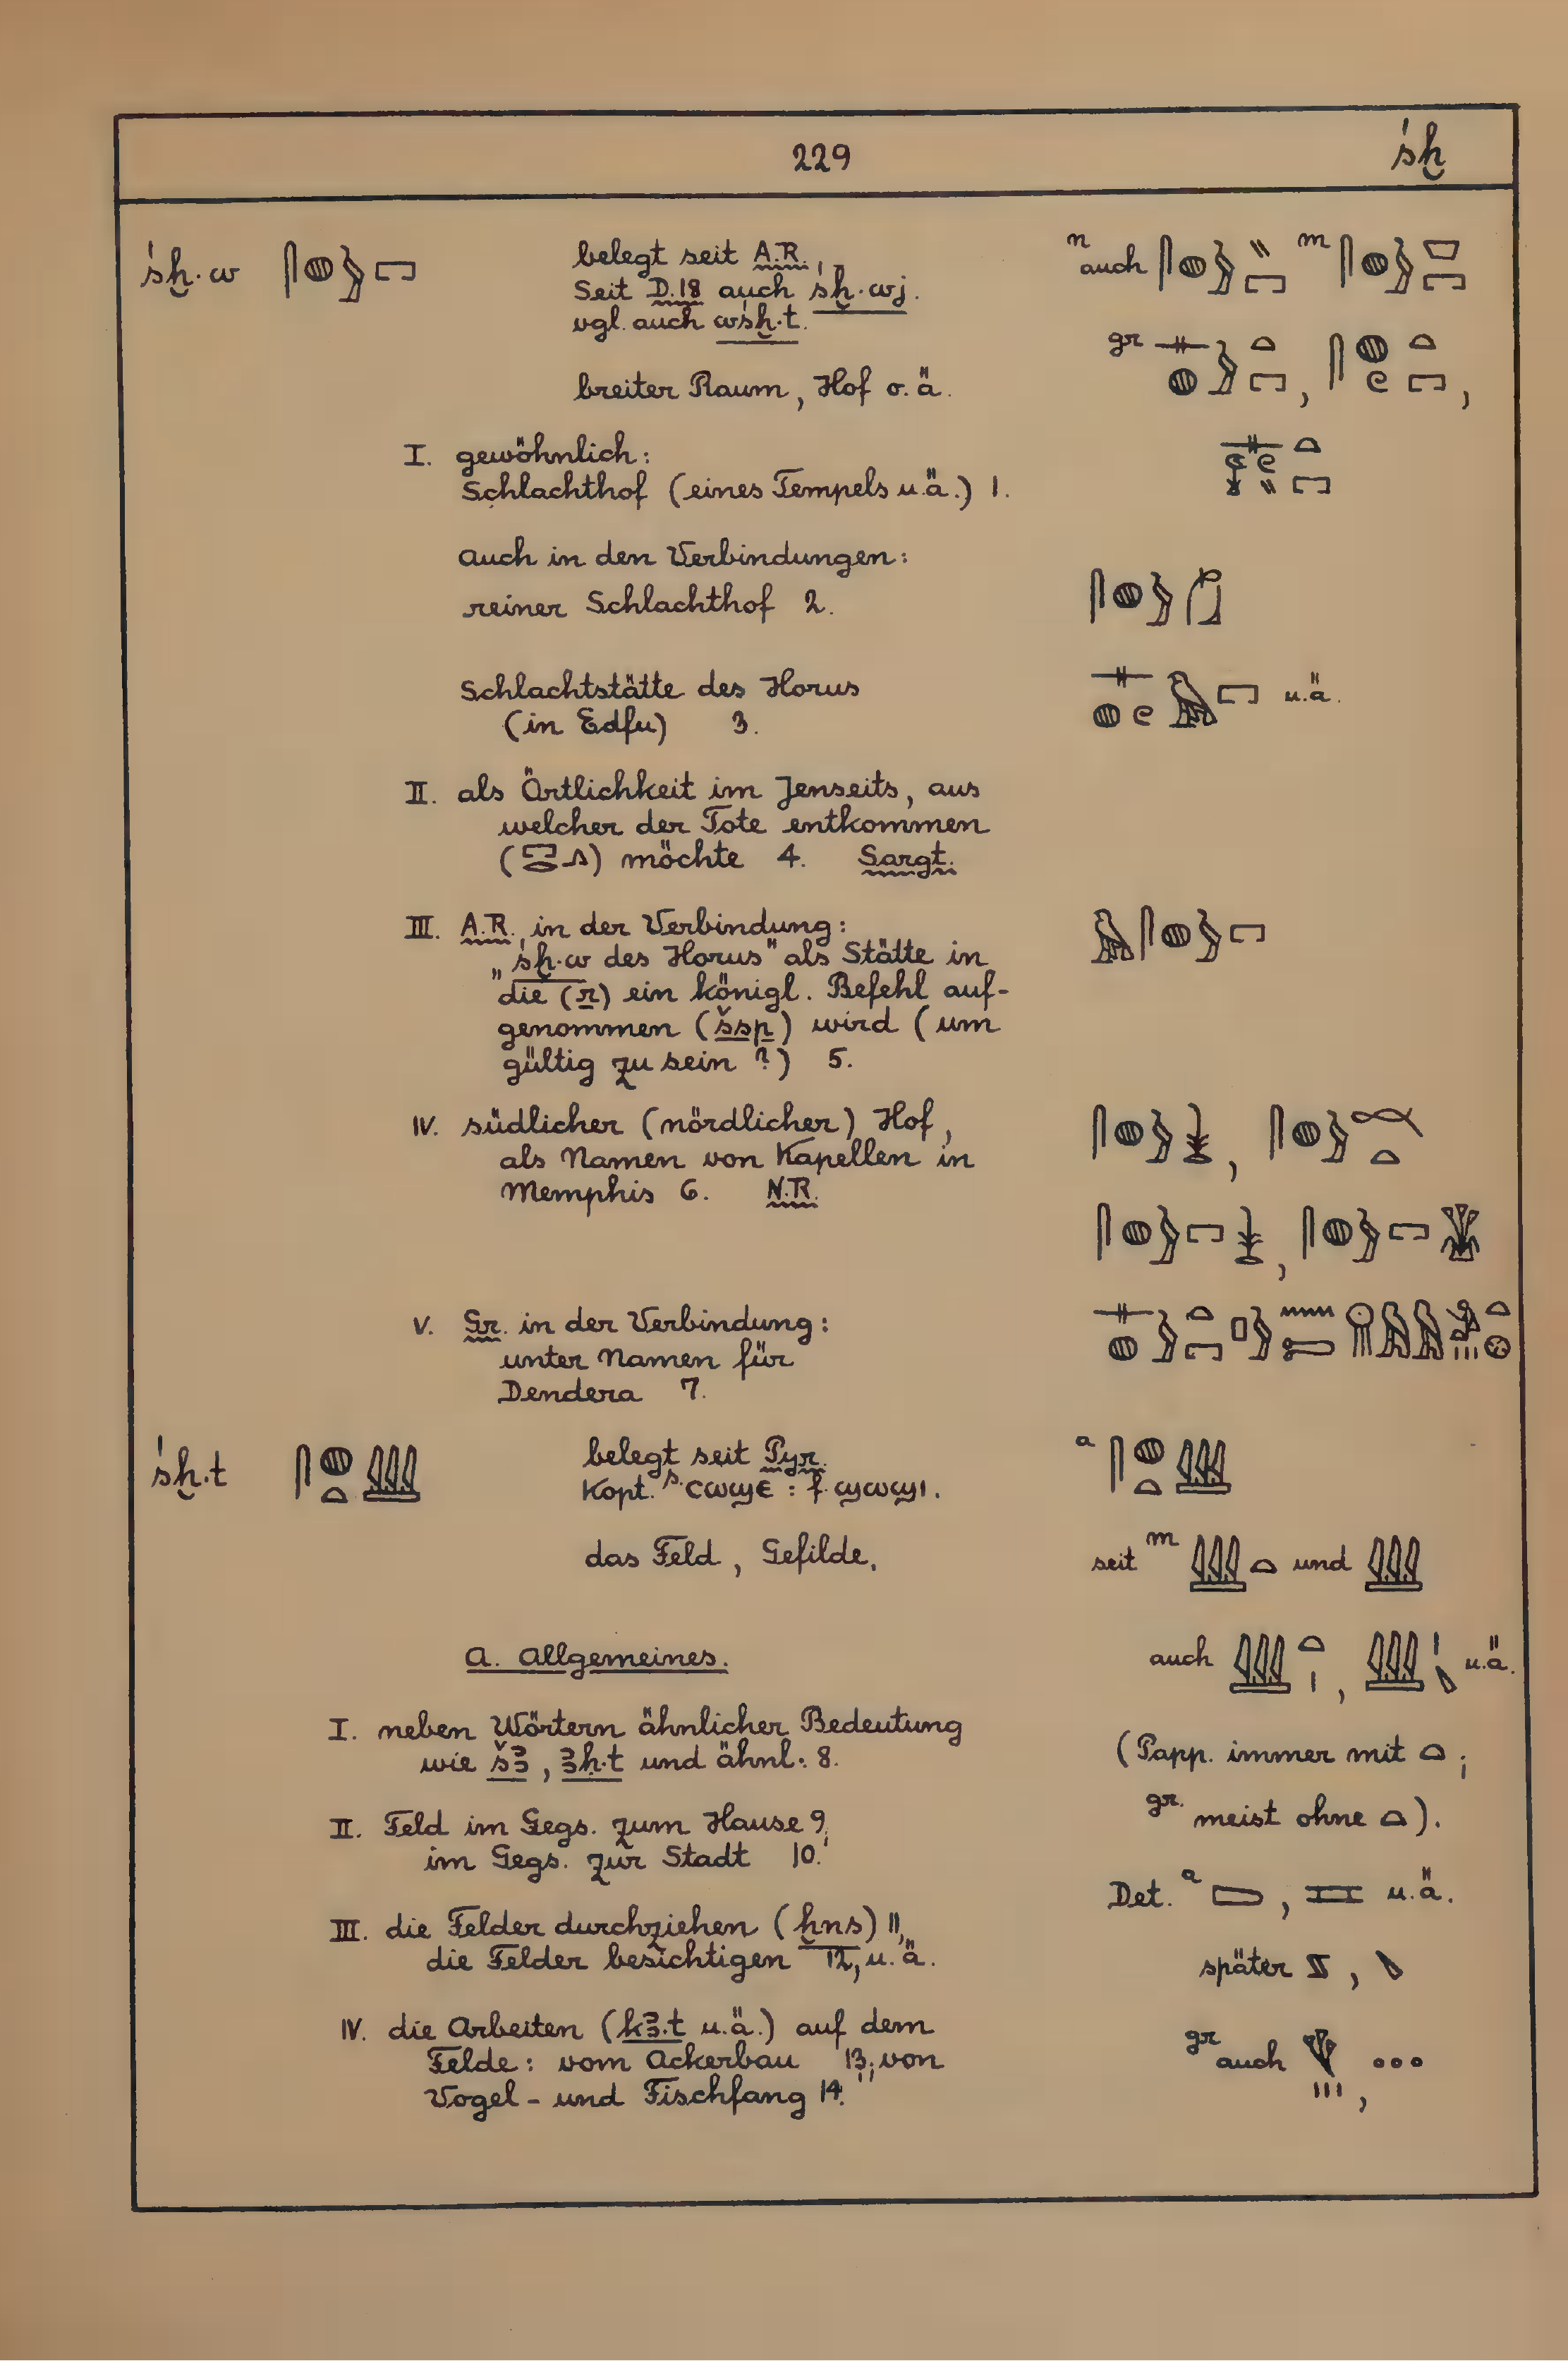 229
śḫ
śḫ·w 𓋴𓐍𓃀𓉐
belegt seit A.R.,
Seit D.18 auch śḫ·wj.
vgl. auch wśḫ·t.
breiter Raum, Hof o.ä.
n auch
m
gr
I. gewöhnlich:
Schlachthof (eines Tempels u.ä.) 1.
auch in den Verbindungen:
reiner Schlachthof 2.
Schlachtstätte des Horus
u.ä.
(in Edfu) 3.
II. als Örtlichkeit im Jenseits, aus
welcher der Tote entkommen
(𓉐𓂋𓂻) möchte 4. Sargt.
III. A.R. in der Verbindung:
„śḫ·w des Horus" als Stätte in
die (r) ein königl. Befehl auf-
genommen (šsp) wird (um
gültig zu sein ?) 5.
IV. südlicher (nördlicher) Hof,
als Namen von Kapellen in
Memphis 6. N.R.
V. Gr. in der Verbindung:
unter Namen für
Dendera 7.
śḫ·t 𓋴𓐍𓏏𓇏
belegt seit Pyr.
Kopt. s. ⲥⲱϣⲉ : f. ϣⲱϣⲓ.
das Feld, Gefilde.
a 𓋴𓐍𓏏𓇏
seit m 𓇏𓏏 und 𓇏
auch 𓇏𓏏𓏤, 𓇏 u.ä.
(Papp. immer mit 𓏏;
gr. meist ohne 𓏏).
Det. a u.ä.
später
gr auch
A. Allgemeines.
I. neben Wörtern ähnlicher Bedeutung
wie šꜣ, ꜣḥ·t und ähnl. 8.
II. Feld im Gegs. zum Hause 9,
im Gegs. zur Stadt 10.
III. die Felder durchziehen (ḫns) 11,
die Felder besichtigen 12, u.ä.
IV. die Arbeiten (kꜣ·t u.ä.) auf dem
Felde: vom Ackerbau 13; von
Vogel- und Fischfang 14.